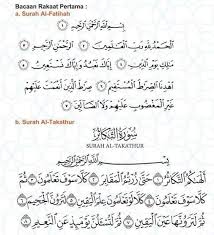 Bacaan Rakaat Pertama :
a. Surah Al-Fatihah
بِسْمِ اللَّهِ الرَّحْمَٰنِ الرَّحِيمِ
الْحَمْدُ لِلَّهِ رَبِّ الْعَالَمِينَ ۝ الرَّحْمَٰنِ الرَّحِيمِ ۝
مَالِكِ يَوْمِ الدِّينِ ۝ إِيَّاكَ نَعْبُدُ وَإِيَّاكَ نَسْتَعِينُ ۝
اهْدِنَا الصِّرَاطَ الْمُسْتَقِيمَ ۝ صِرَاطَ الَّذِينَ أَنْعَمْتَ عَلَيْهِمْ
غَيْرِ الْمَغْضُوبِ عَلَيْهِمْ وَلَا الضَّالِّينَ
b. Surah Al-Takathur
سُورَةُ التَّكَاثُرِ
SURAH AL-TAKATHUR
بِسْمِ اللَّهِ الرَّحْمَٰنِ الرَّحِيمِ
أَلْهَاكُمُ التَّكَاثُرُ ۝ حَتَّىٰ زُرْتُمُ الْمَقَابِرَ ۝ كَلَّا سَوْفَ تَعْلَمُونَ ۝
ثُمَّ كَلَّا سَوْفَ تَعْلَمُونَ ۝ كَلَّا لَوْ تَعْلَمُونَ عِلْمَ الْيَقِينِ ۝ لَتَرَوُنَّ الْجَحِيمَ
ثُمَّ لَتَرَوُنَّهَا عَيْنَ الْيَقِينِ ۝ ثُمَّ لَتُسْأَلُنَّ يَوْمَئِذٍ عَنِ النَّعِيمِ